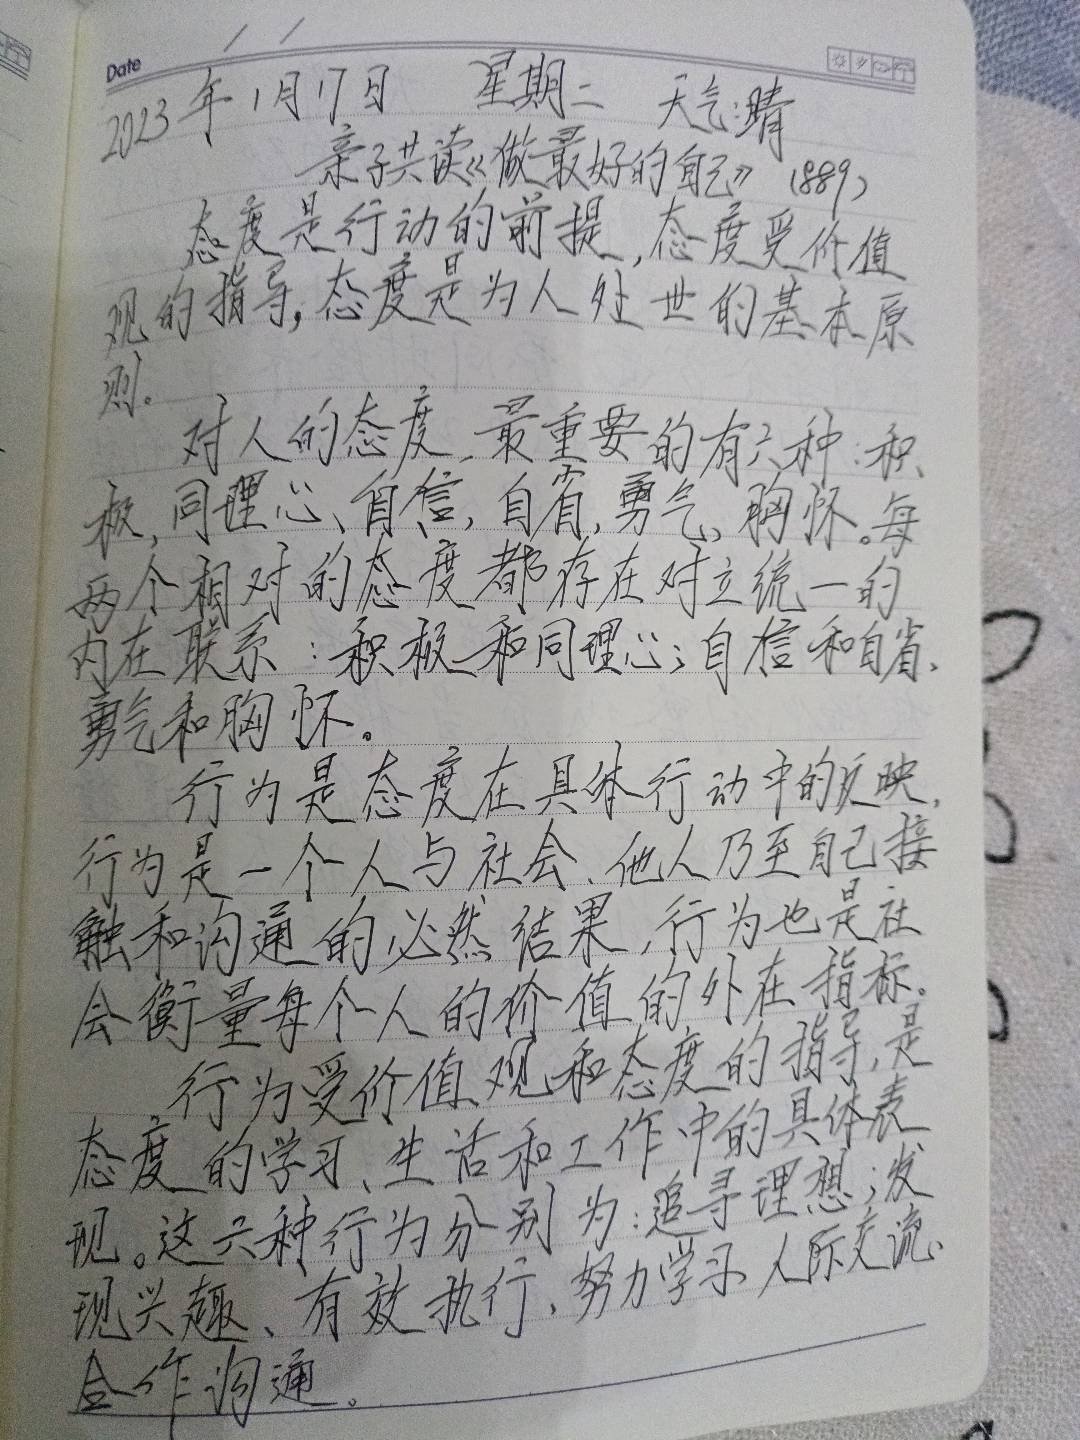 Date
2023年1月17日 星期二 天气:晴
亲子共读《做最好的自己》(889)
态度是行动的前提,态度受价值
观的指导,态度是为人处世的基本原
则。
对人的态度,最重要的有六种:积
极,同理心、自信,自省,勇气、胸怀。每
两个相对的态度都存在对立统一的
内在联系:积极和同理心;自信和自省、
勇气和胸怀。
行为是态度在具体行动中的反映,
行为是一个人与社会、他人乃至自己接
触和沟通的必然结果,行为也是社
会衡量每个人的价值的外在指标。
行为受价值观和态度的指导,是
态度的学习、生活和工作中的具体表
现。这六种行为分别为:追寻理想;发
现兴趣、有效执行、努力学习、人际交流、
合作沟通。